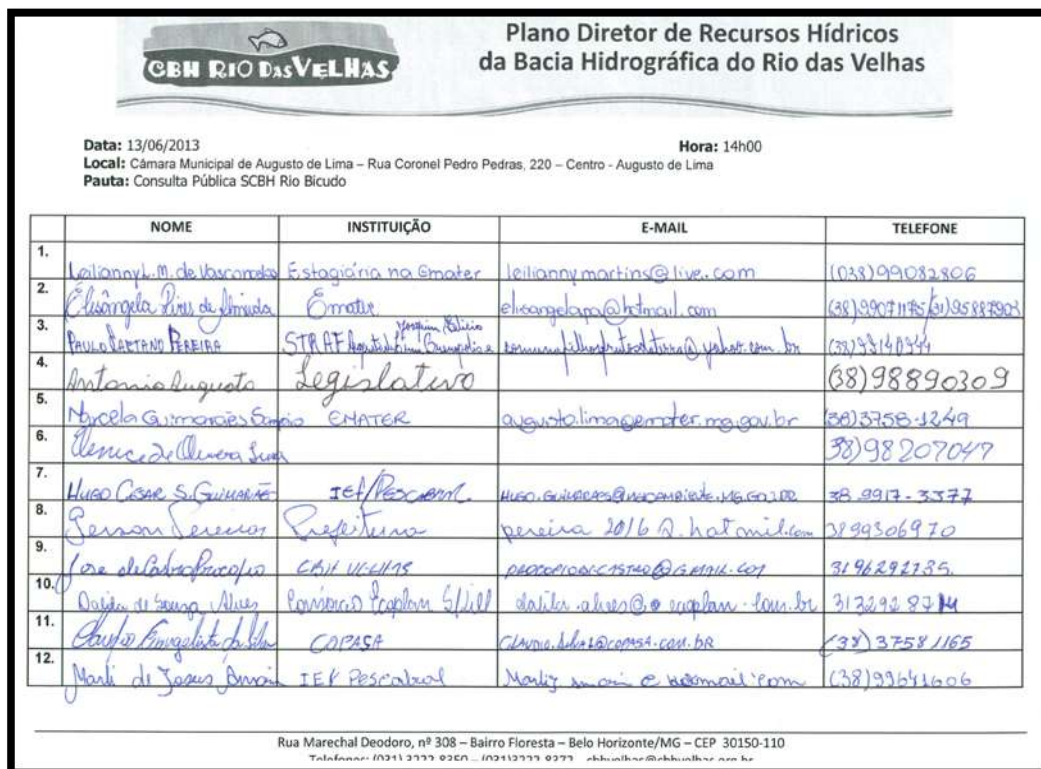 CBH RIO DAS VELHAS
Plano Diretor de Recursos Hídricos
da Bacia Hidrográfica do Rio das Velhas
Data: 13/06/2013 Hora: 14h00
Local: Câmara Municipal de Augusto de Lima – Rua Coronel Pedro Pedras, 220 – Centro - Augusto de Lima
Pauta: Consulta Pública SCBH Rio Bicudo
NOME INSTITUIÇÃO E-MAIL TELEFONE
1. Leilianny L. M. de Vasconcelos Estagiária na Emater leiliannymartins@live.com (038)99082806
2. Elisângela Pires de Almeida Emater elisangelapa@hotmail.com (38)99071175/(31)95887903
3. PAULO CAETANO PEREIRA STRAF
4. Antonio Augusto Legislativo (38)98890309
5. Marcela Guimarães EMATER augusto.lima@emater.mg.gov.br (38)3758-1249
6. de Oliveira 38)98207047
7. HUGO CESAR S. GUIMARÃES IEF/PESCABRAL 38.9917-3377
8. Gerson Pereira Prefeitura pereira 2016 @.hotmil.com 3899306970
9. Jose de Castro Procopio CBH VELHAS
10. Dalila de Sousa Alves Consorcio Ecoplan
11. Claudio Evangelista da Silva COPASA CLAUDIO.SILVA@COPASA.COM.BR (38) 37581165
12. Marli de Jesus IEF Pescabral (38)99641606
Rua Marechal Deodoro, nº 308 – Bairro Floresta – Belo Horizonte/MG – CEP 30150-110
Telefones: (031) 3222-8350 – (031)3222-8372 – cbhvelhas@cbhvelhas.org.br